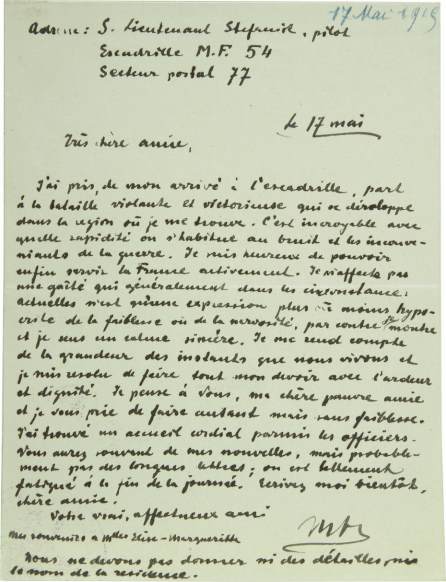 17 Mai 1915
Adresse: S. Lieutenant Stefanik, pilot
Escadrille M.F. 54
Secteur postal 77
le 17 mai
Très chère amie,
J'ai pris, de mon arrivé à l'escadrille, part
à la bataille violante et victorieuse qui se déroloppe
dans la region où je me trouve. C'est incroyable avec
quelle rapidité on s'habitue au bruit et les inconve-
niants de la guerre. Je suis heureux de pouvoir
enfin servir la France activement. Je n'affecte pas
une gaîté qui généralement dans les circonstances
actuelles n'est qu'une expression plus ou moins hypo-
crite de la faiblesse ou de la nervosité, par contre je montre
et je sens un calme sincère. Je me rend compte
de la grandeur des instants que nous vivons et
je suis resolu de faire tout mon devoir avec l'ardeur
et dignité. Je pense à vous, ma chère pauvre amie
et je vous prie de faire autant mais sans faiblesse.
J'ai trouvé un accueil cordial parmis les officiers.
Vous aurez souvent de mes nouvelles, mais probable-
ment pas des longues lettres; on est tellement
fatigué à la fin de la journée. Ecrivez moi bientôt,
chère amie.
Votre vrai, affectueux ami
Mes souvenirs à Mlles Elise-Margueritte
Nous ne devons pas donner ni des détailles, ni
le nom de la residence.